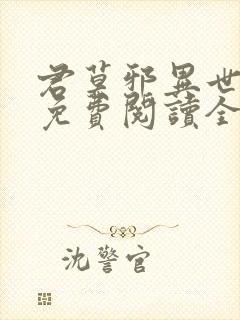 君莫邪異世
免費閱讀全
沈警官